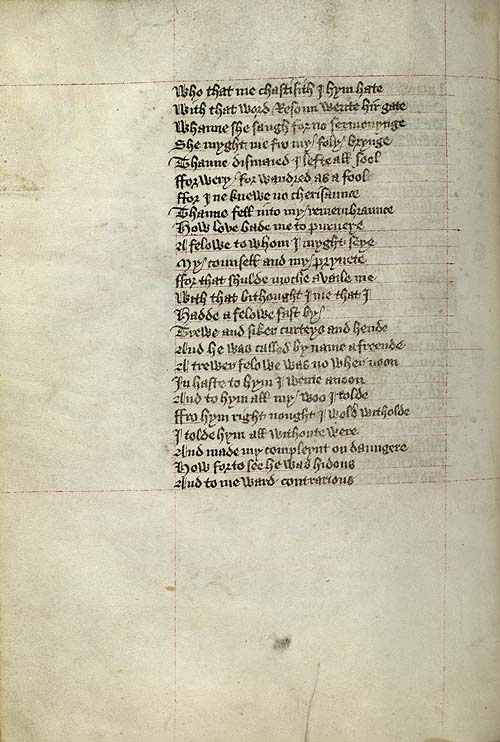 Who that me chastisith I hym hate
With that word Resoun wente hir gate
Whanne she saugh for no sermonynge
She myght me fro my foly brynge
Thanne dismaied I lefte all sool
ffor wery for wandred as a fool
ffor I ne knewe no cherisaunce
Thanne fell into my remembraunce
How love bade me to purueye
A felowe to whom I myght seye
My counsell and my pryuete
ffor that shulde moche availe me
With that bithought I me that I
Hadde a felowe fast by
Trewe and siker curteys and hende
And he was called by name a freende
A trewer felowe was no wher noon
In haste to hym I wente anoon
And to hym all my woo I tolde
ffro hym right nought I wold witholde
I tolde hym all withoute were
And made my compleynt on daungere
How for to see he was hidous
And to me ward contrarious